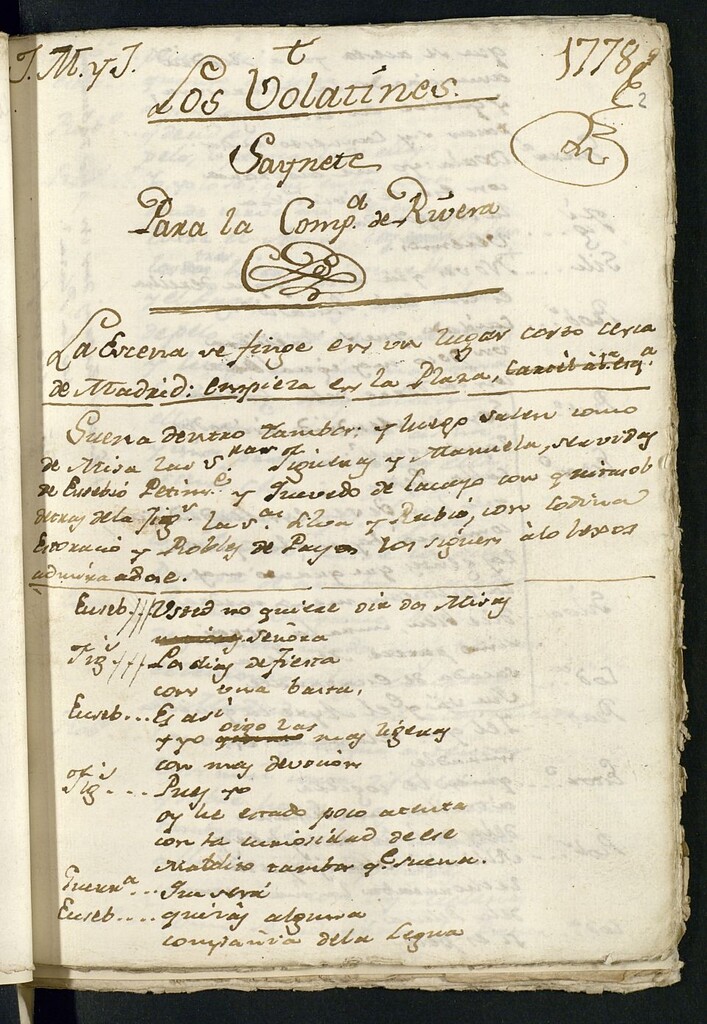 J. M. y J.
1778
Los Volatines.
Saynete
Para la Comp.ª de Rivera
La Escena se finge en un lugar corto cerca
de Madrid: empieza en la Plaza,
Suena dentro tambor; y luego salen como
de Misa las s.ras Figueras y Manuela, servidas
de Eusebio Petim.e y Quevedo de Lacayo con quitasol
detras de la Fig.s la s.as y Rubio, con Codina
Esporacio y Robles de Payos los siguen á lo lexos
admirandose.
Euseb. // Usted no quiere oir dos Misas
señora
Fig.s // Los dias de fiesta
con una basta.
Euseb... Es asi
y yo oigo las mas ligeras
con mas devocion
Fig.s ... Pues yo
oy he estado poco atenta
con la curiosidad de ese
maldito tambor q.e suena.
Guerr.a ... Que será
Euseb.... quizás alguna
compañia dela Legua